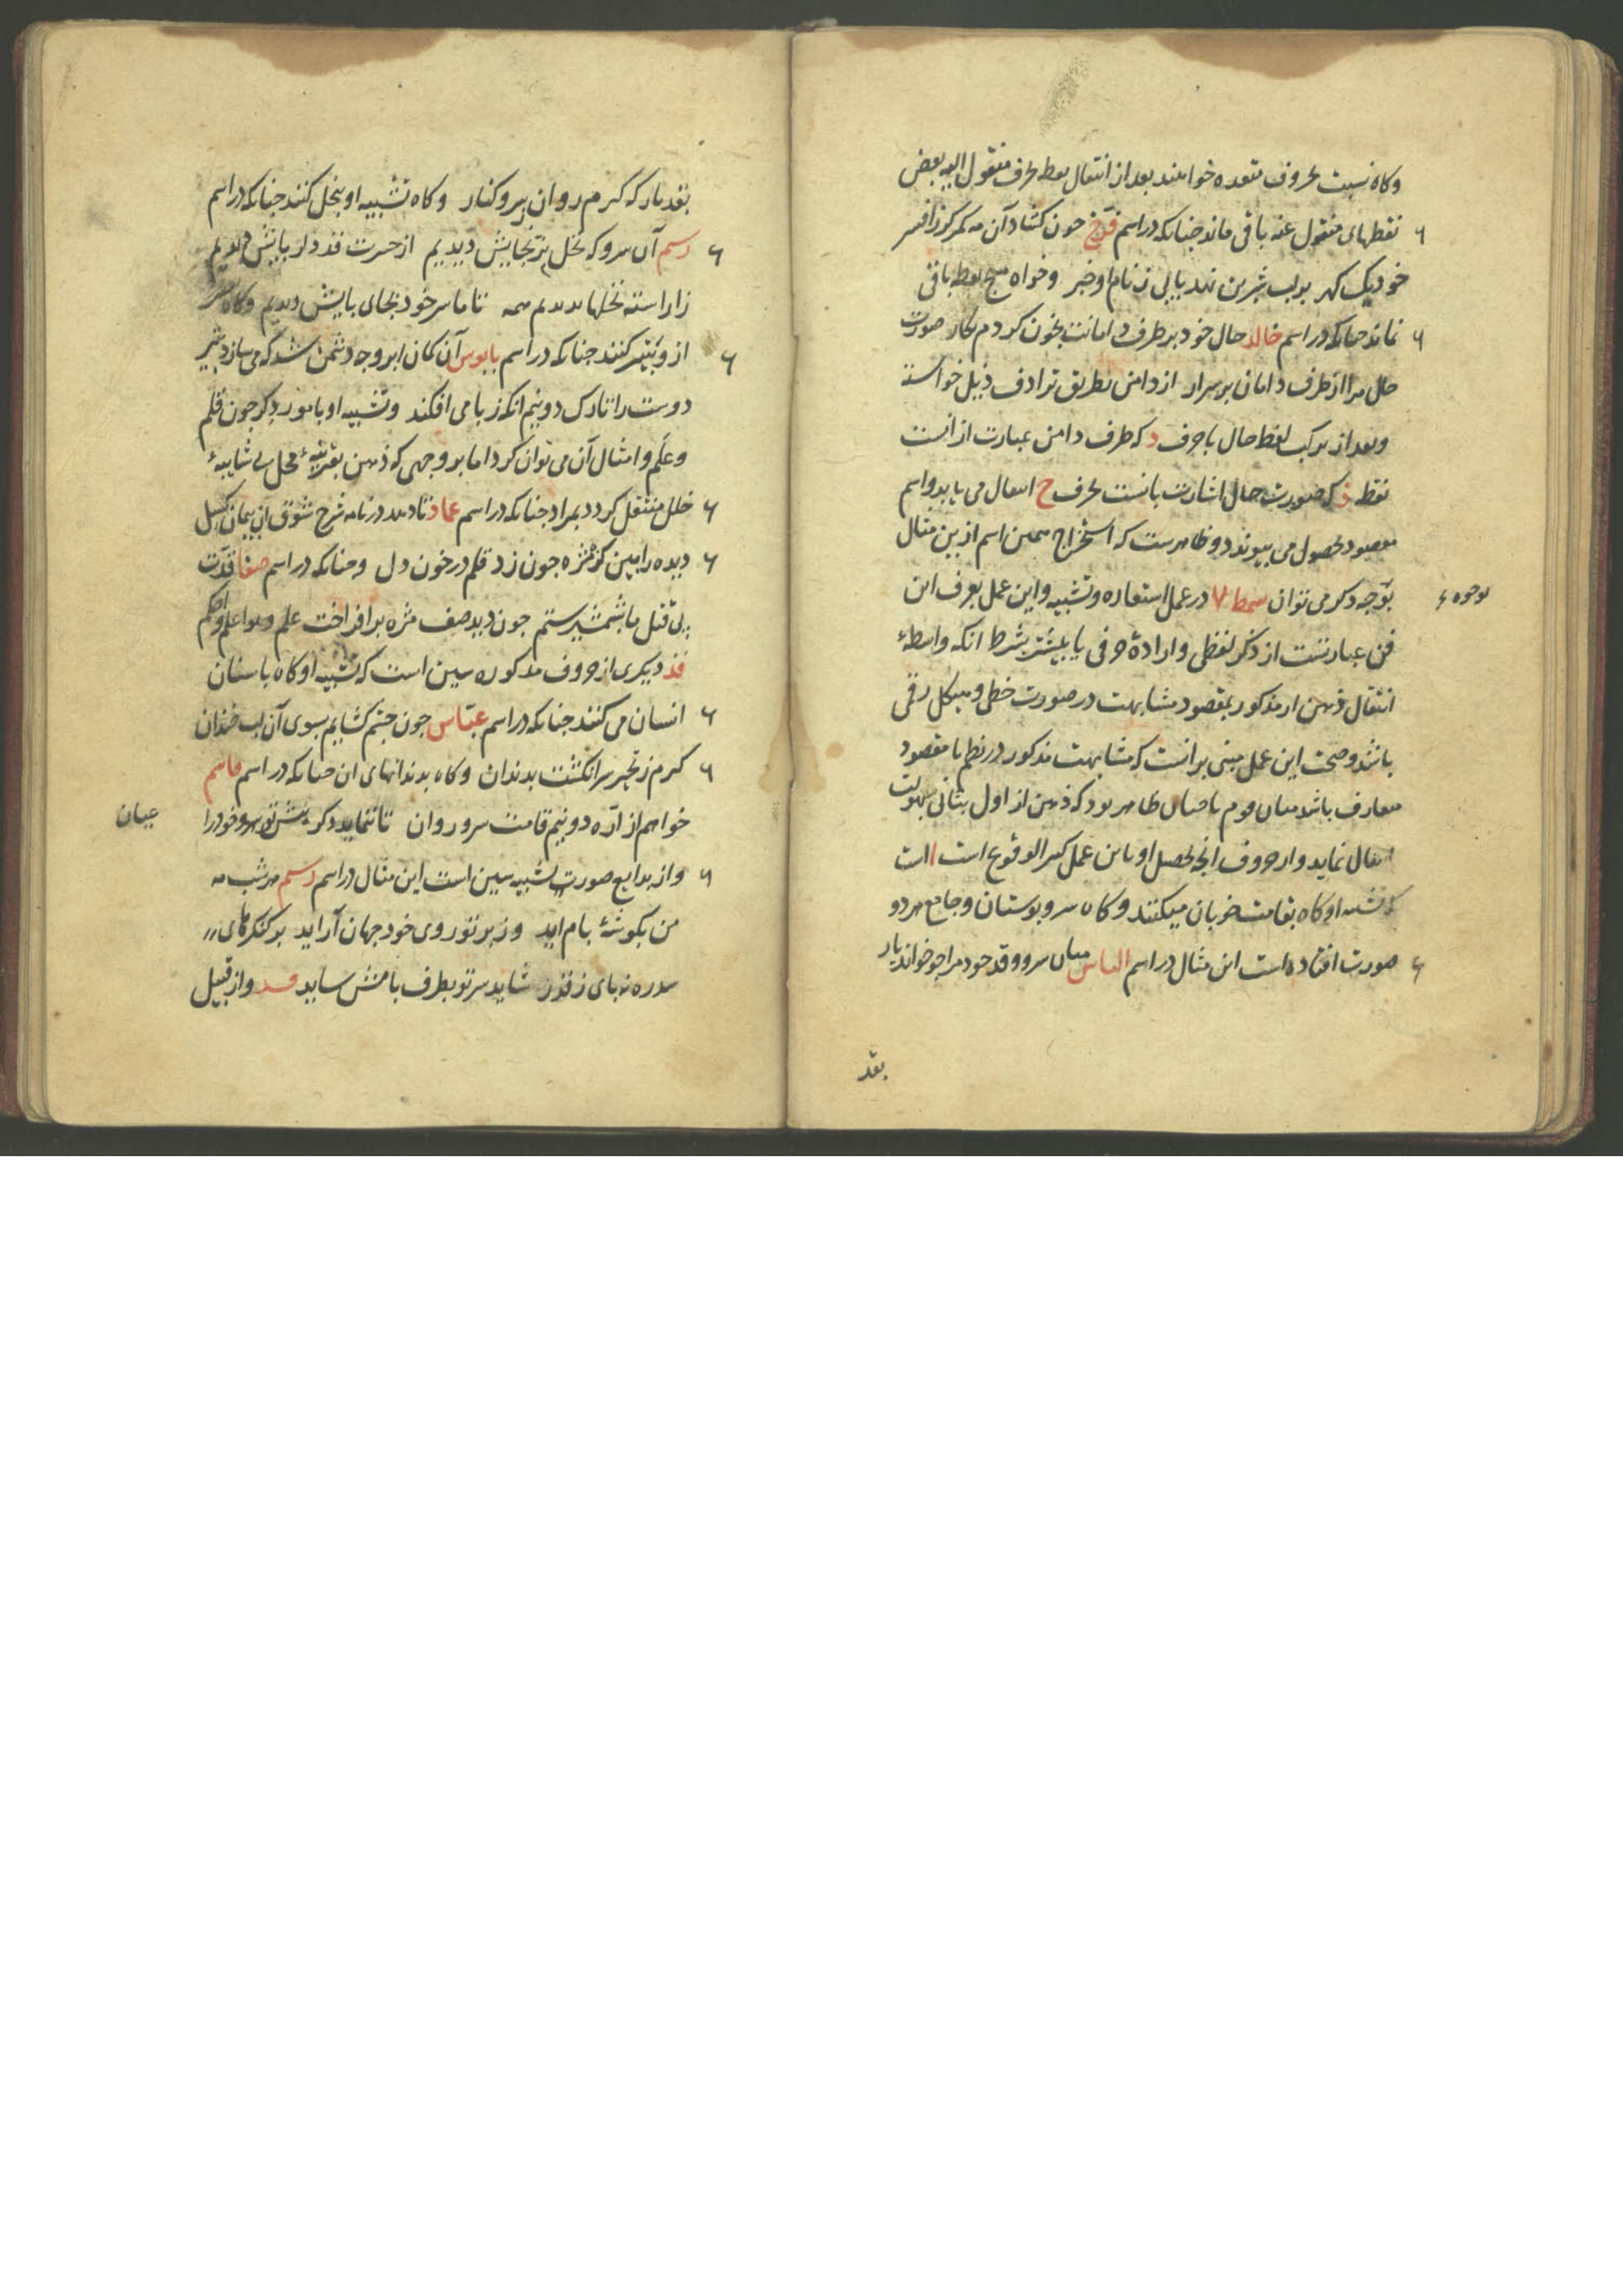 وکاه نسبت بحروف متعدده خوانند بعد از انتقال نقطه بحرف منقول الیه بعض
نقطهای منقول عنه باقی ماند جنانکه در اسم فرّخ جون کشاد آن مه کمر کوز افسر
خود یک کهر بر لب شیرین نهد یابی ز نام او خبر وخواه هیچ نقطه باقی
نماند جنانکه در اسم خالد حال خود بر طرف دامانت بخون کردم نکار صورت
حال مرا از طرف دامان برمدار از دامن بطریق ترادف ذیل خواسته
وبعد از ترکیب لفظ حال با حرف د که طرف دامن عبارت از انست
نقطه ذ که صورت حال اشارت بانست بحرف ح انتقال می یابد واسم
مقصود بحصول می پیوندد وظاهرست که استخراج همین اسم ازین مثال
بوجوه
بتوجه دکر می توان سمط ۷ در عمل استعاره وتشبیه واین عمل بعرف این
فن عبارتست از ذکر لفظی وارادهٔ حرفی یا بیشتر بشرط انکه واسطهٔ
انتقال ذهن از مذکور بمقصود مشابهت در صورت خطی وهیکل رقمی
باشد وصحت این عمل مبنی برانست که مشابهت مذکور در نظم با مقصود
متعارف باشد میان قوم یا جنان ظاهر بود که ذهن از اول بثانی بسهولت
انتقال نماید واز حروف انجه تحصیل او باین عمل کثیر الوقوع است ا است
که تشبیه او کاه بقامت خوبان میکنند وکاه سرو بوستان وجامع هر دو
صورت افتاده است این مثال در اسم الیاس میان سرو وقد خود مرا جو خواند یار
بقد
بقد یار که کرم روان ز سرو کنار وکاه تشبیه او بنخل کنند جنانکه در اسم
رسم آن سرو که نخل تر بجایش دیدیم از حسرت قد دل ز پایش دیدیم
زاراسته نخلها بدیدیم همه تا ما سر خود بجای پایش دیدیم وکاه
از و بتیر کنند جنانکه در اسم بابوس آن کمان ابرو جه دشمن شد که می سازد بتیر
دوست را تارک دو نیم انکه ز پا می افکند وتشبیه او بامور دکر جون قلم
وعلم وامثال آن می توان کرد اما بر وجهی که ذهن بقرینهٔ محل بی شایبهٔ
خلل منتقل کردد بمراد جنانکه در اسم عماد تا دهد در نامه شرح شوق آن پیمان کسل
دیده را ببین کز مژه جون زد قلم در خون دل وجنانکه در اسم صفا قدّت
پی قتل ما شمشیر ستم جون دید صف مژه برافراخت علم وهو اعلم واحکم
قد دیکری از حروف مذکوره سین است که تشبیه او کاه باسنان
انسان می کنند جنانکه در اسم عبّاس جون جشم کشایم بسوی آن لب خندان
کرم ز تحیر سر انکشت بدندان وکاه بدندانهای ان جنانکه در اسم قاسم
خواهم از ارّه دو نیم قامت سرو روان تا ننماید دکر پیش تو سرو خود را
عیان
واز بدایع صورت تشبیه سین است این مثال در اسم رسم هر شب مه
من بکوشهٔ بام اید وز پرتو روی خود جهان آراید بر کنکرهای
سدره نه پای ز قدر شاید سر تو بطرف بامش ساید قد واز قبیل